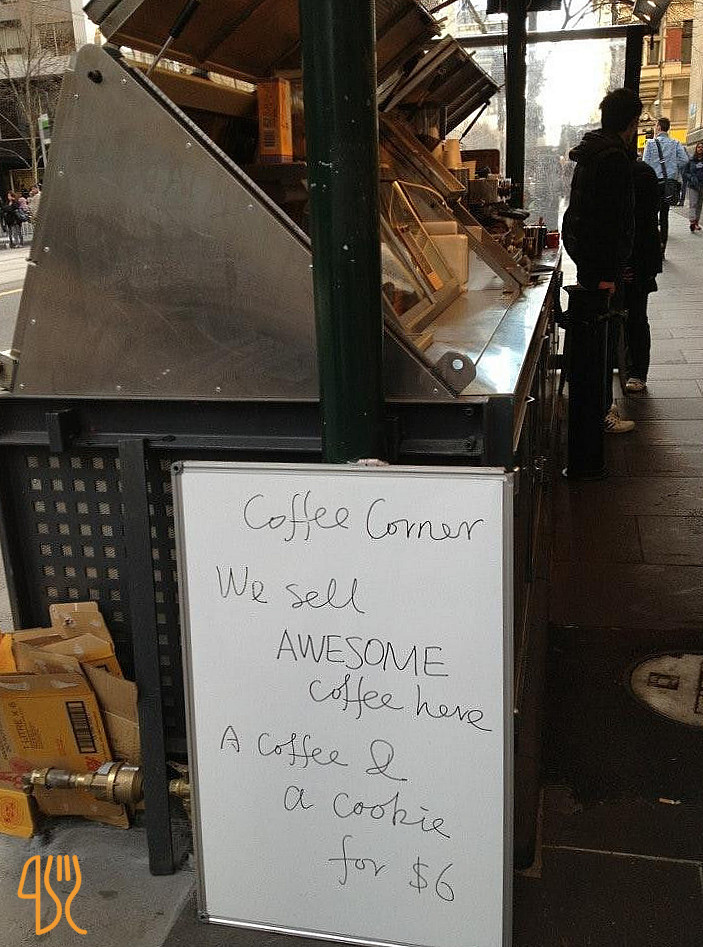 Coffee Corner
We sell
AWESOME
coffee here
A coffee &
a cookie
for $6